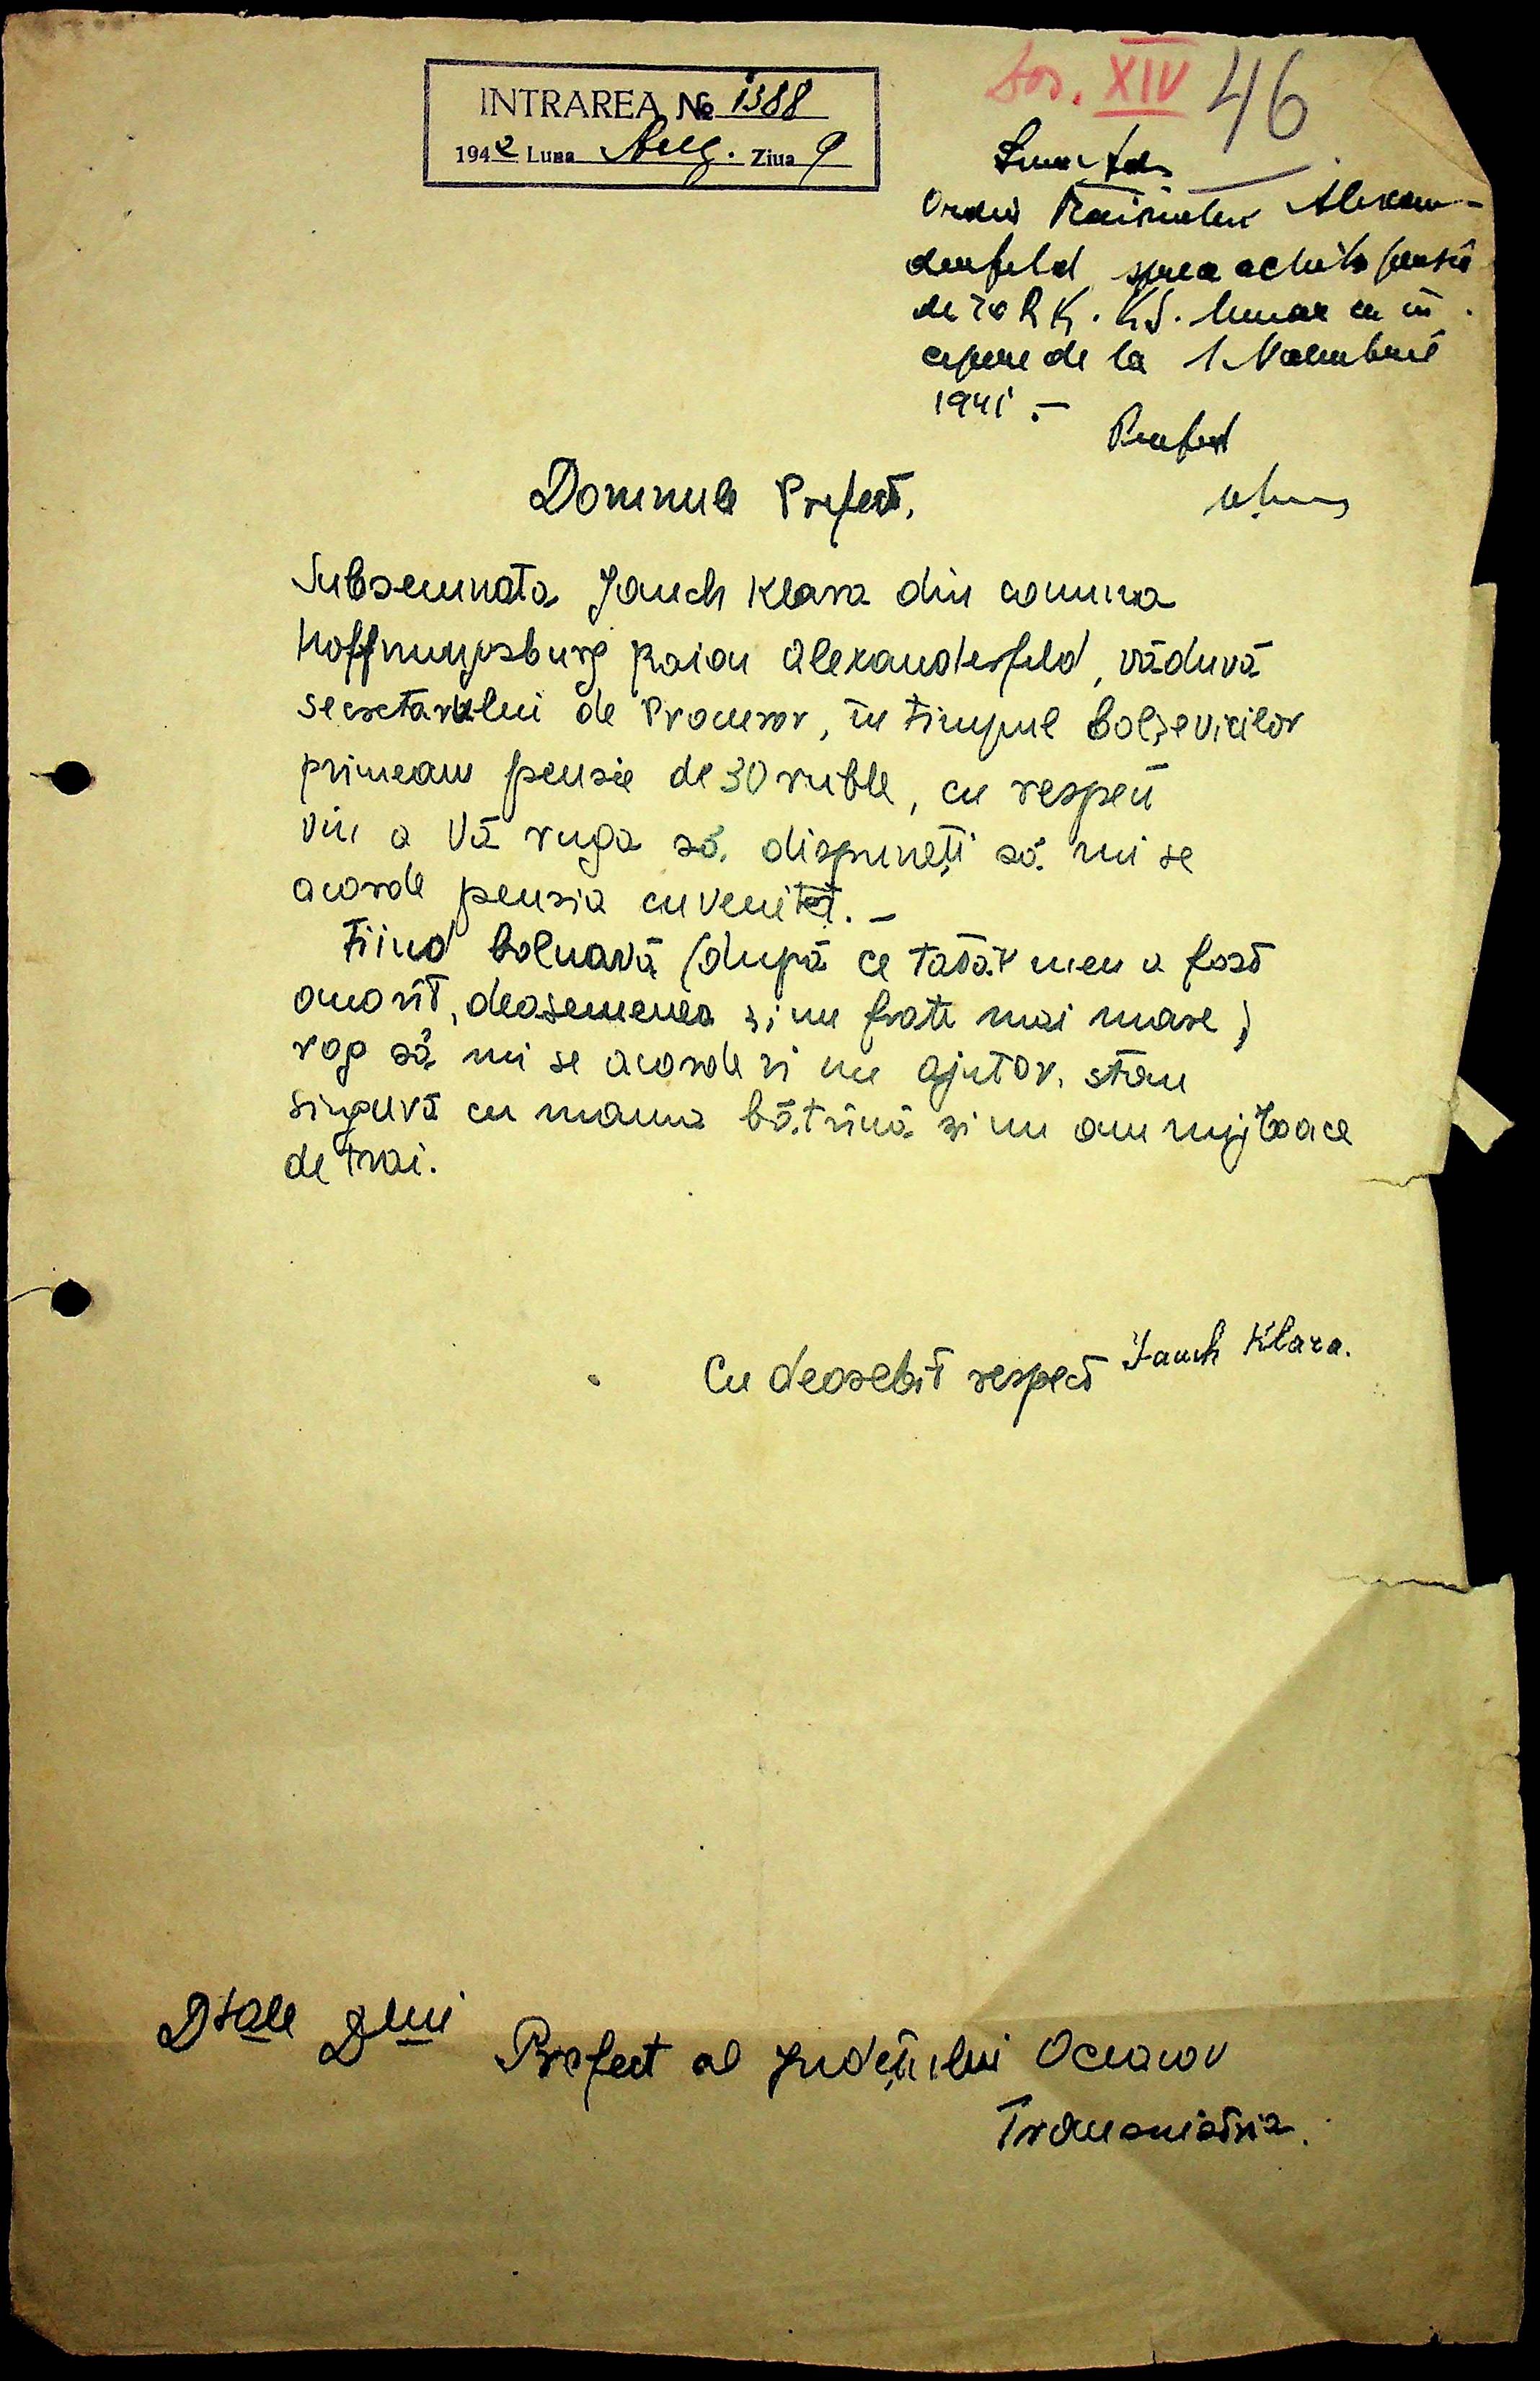 INTRAREA No 1388
1942 Luna Aug. Ziua 9
Dos. XIV 46
Ordin Alexan-
derfeld spre a achita pensie
de 70 R K. K S. lunar cu în
cepere de la 1 Noembrie
1941.—
Prefect
Domnule Prefect,
Subsemnata Jauch Klara din comuna
Hoffnungsburg raion Alexanderfeld, văduvă
secretarului de Procuror, în timpul bolșevicilor
primeam pensie de 30 ruble, cu respect
vin a Vă ruga să dispuneți să mi se
acorde pensia cuvenită.—
Fiind bolnavă (după ce tatăl meu a fost
omorît, deasemenea și un frate mai mare)
rog să mi se acorde si un ajutor. stau
singură cu mama bătrînă si nu am mijloace
de trai.
Cu deosebit respect Jauch Klara.
Dsale Dlui
Prefect al Județului Oceacov
Transnistria.